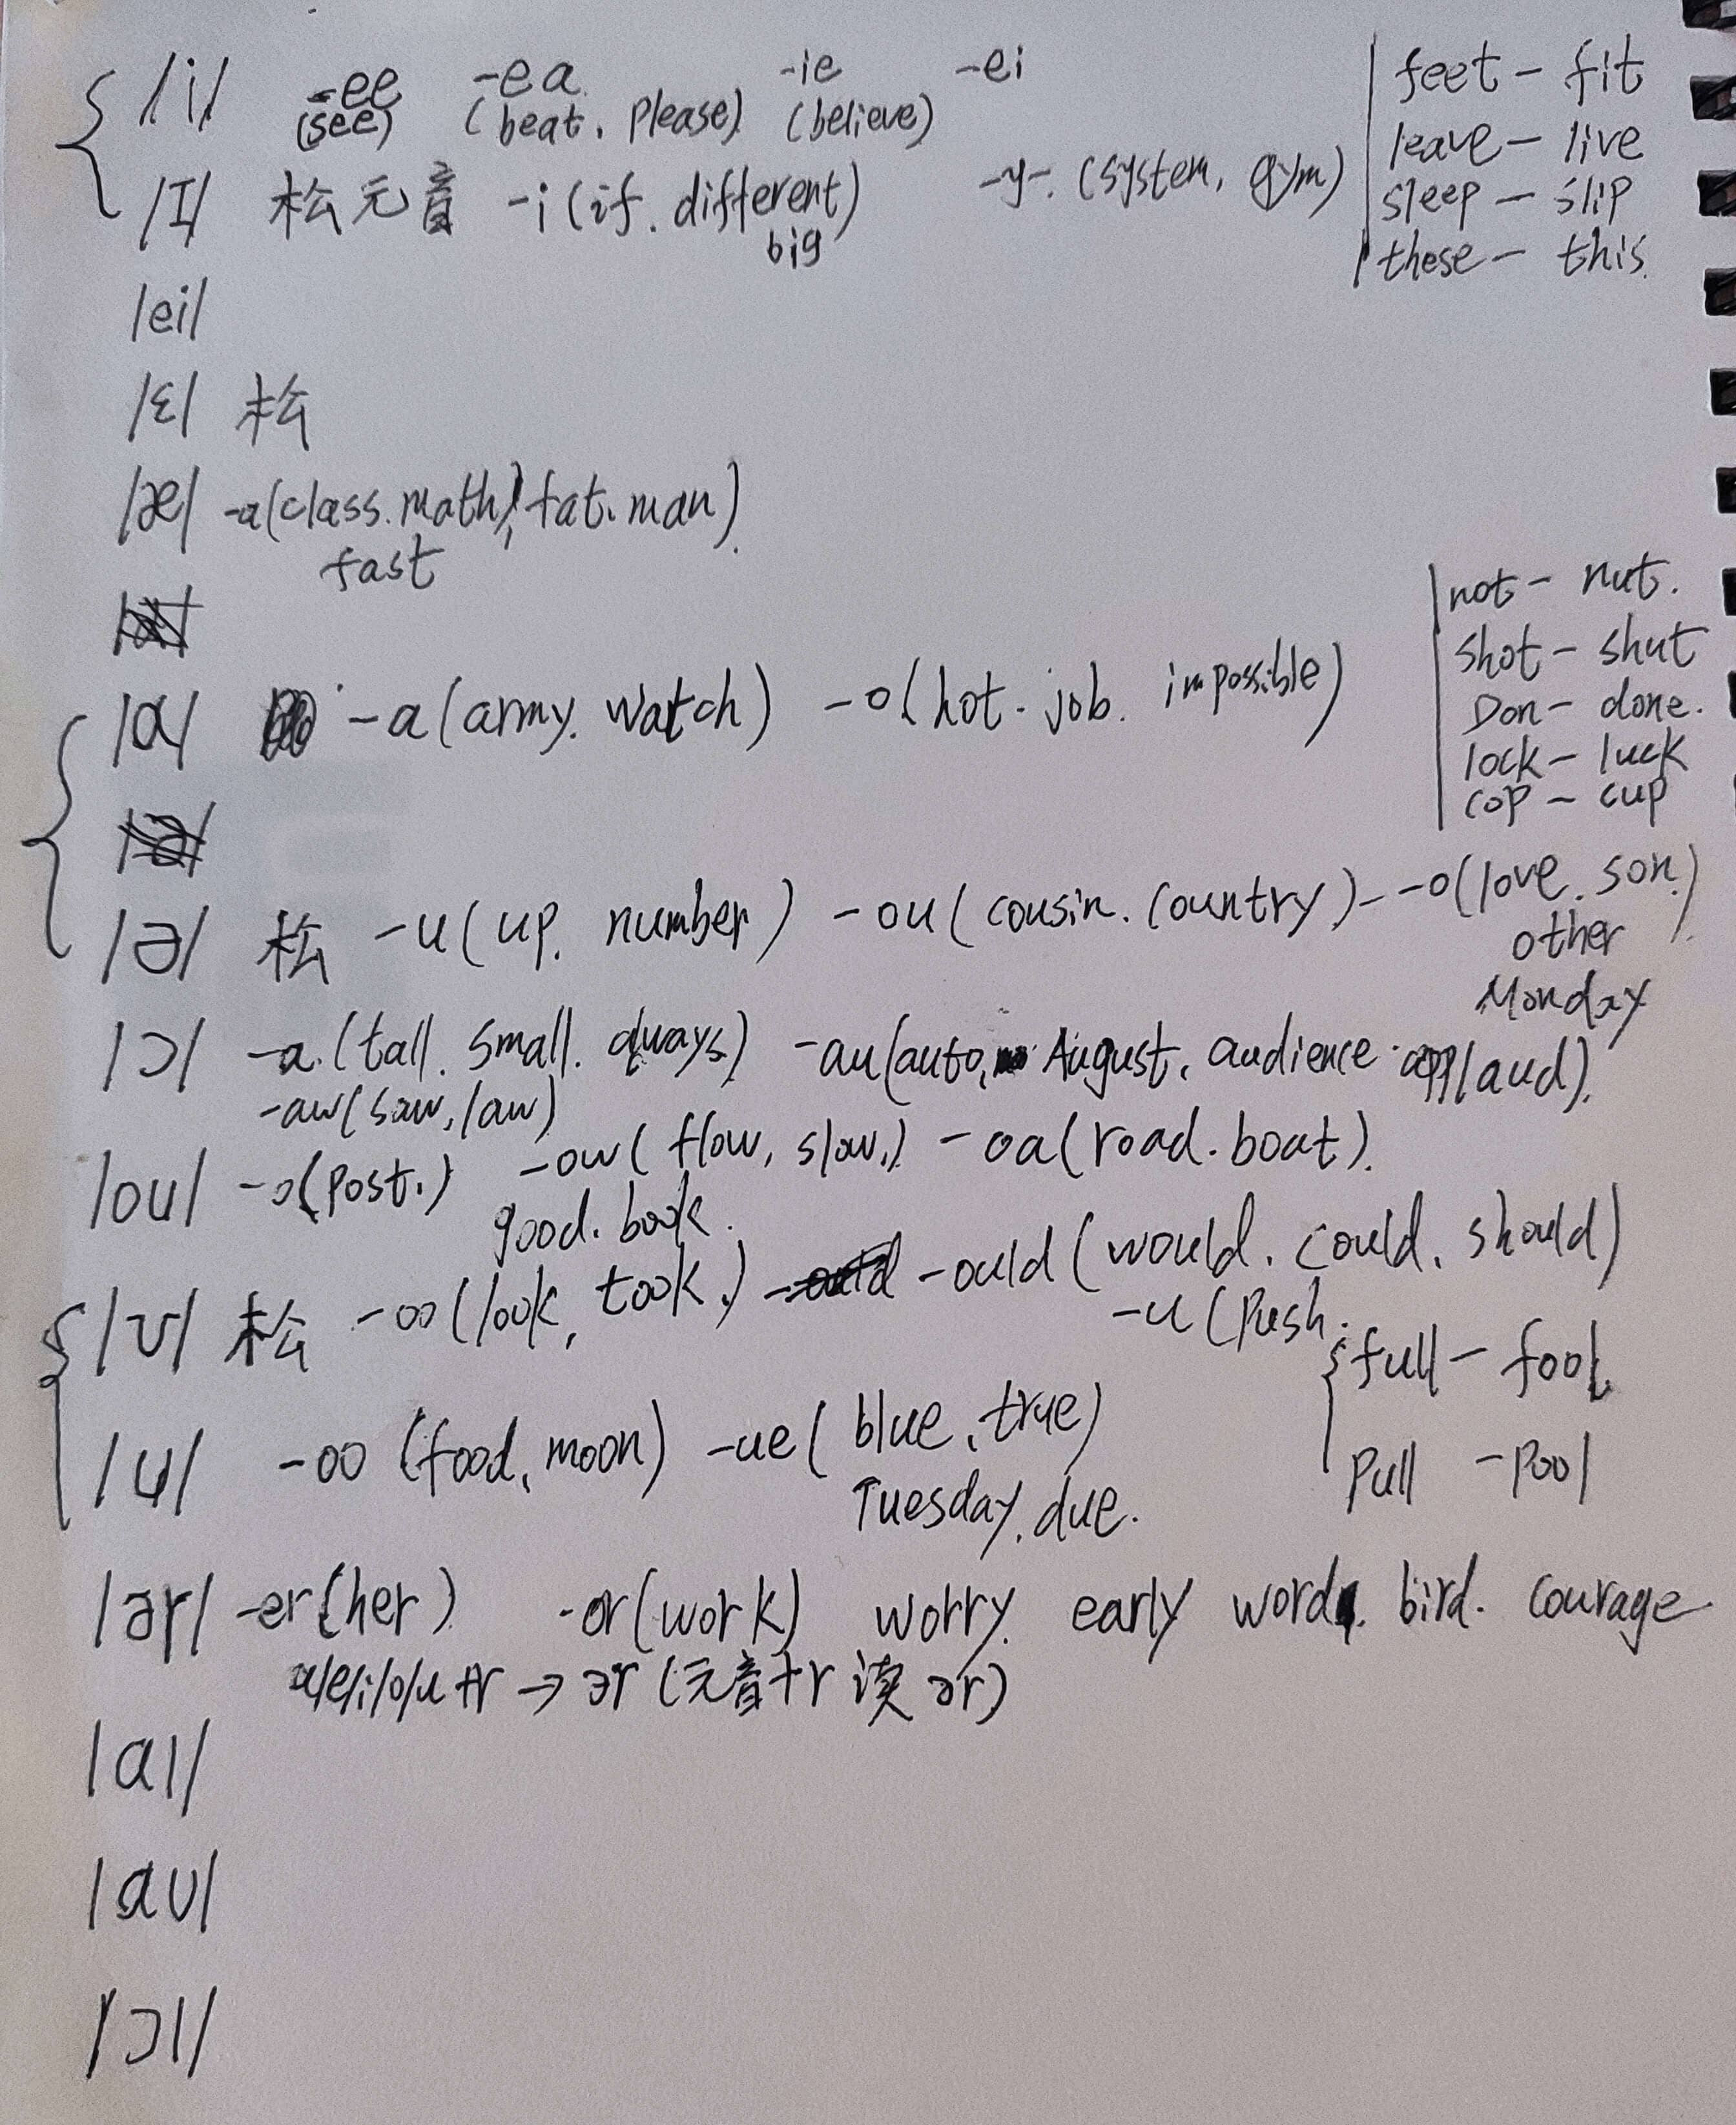 /i/ -ee -ea -ie -ei
(see) (beat. please) (believe)
/I/ 松元音 -i (if. different) -y-. (system, gym)
big
feet - fit
leave - live
sleep - slip
these - this.
/ei/
/ɛ/ 松
/æ/ -a (class. math, fat. man).
fast
/ɑ/ -a (army. watch) -o (hot. job. impossible)
not - nut.
shot - shut
Don - done.
lock - luck
cop - cup
/ə/ 松 -u (up. number) -ou (cousin. country) - -o (love. son.)
other
Monday
/ɔ/ -a. (tall. small. always) -au (auto, August, audience. applaud).
-aw (saw, law)
/ou/ -o (post.) -ow (flow, slow.) -oa (road. boat).
good. book.
/ʊ/ 松 -oo (look, took.) -ould (would. could. should)
-u (push.
full - fool
pull - pool
/u/ -oo (food, moon) -ue (blue, true)
Tuesday. due.
/ər/ -er (her) -or (work) worry. early word. bird. courage
a/e/i/o/u +r → ər (元音+r 读 ər)
/aI/
/aʊ/
/ɔI/